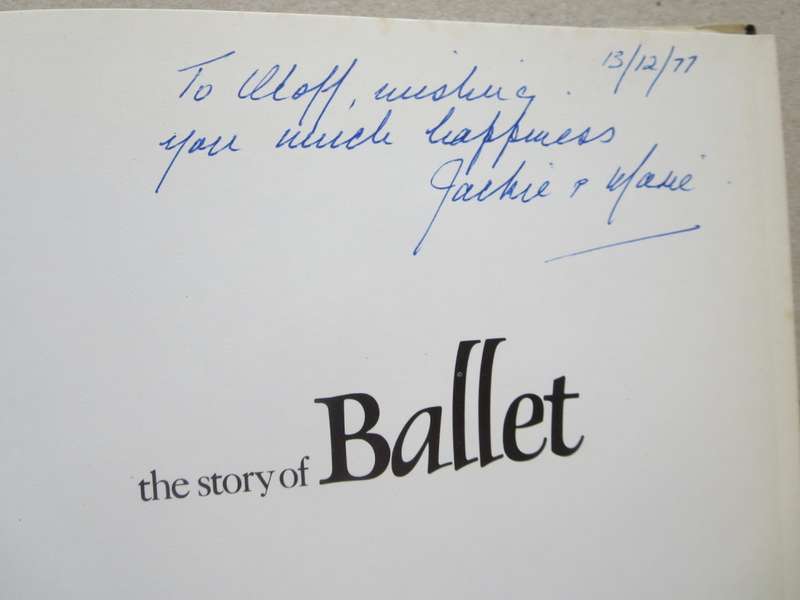 To Oloff, wishing
13/12/77
you much happiness
Jackie & Marie
the story of Ballet